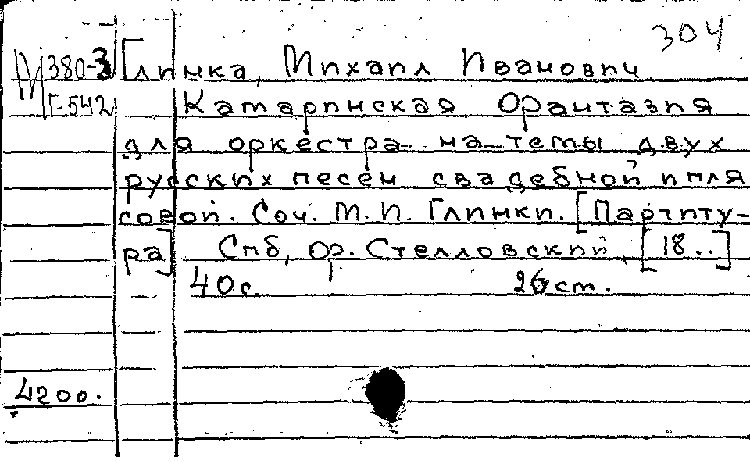 304
М 380-3 Глинка, Михаил Иванович
Г-542 Камаринская Фантазия
для оркестра на темы двух
русских песен свадебной и пля
совой. Соч. М. И. Глинки. [Партиту-
ра] Спб, Ф. Стелловский, [18..]
40 с. 26 ст.
4200.